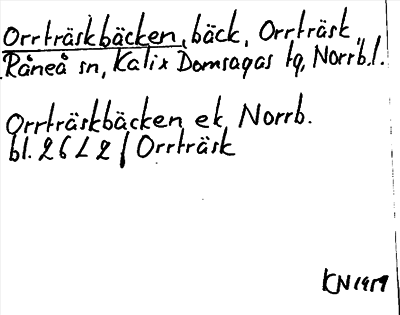 Orrträskbäcken, bäck, Orrträsk,
Råneå sn, Kalix Domsagas tg, Norrb.l.
Orrträskbäcken ek Norrb.
bl. 26L2f Orrträsk
KN 1959